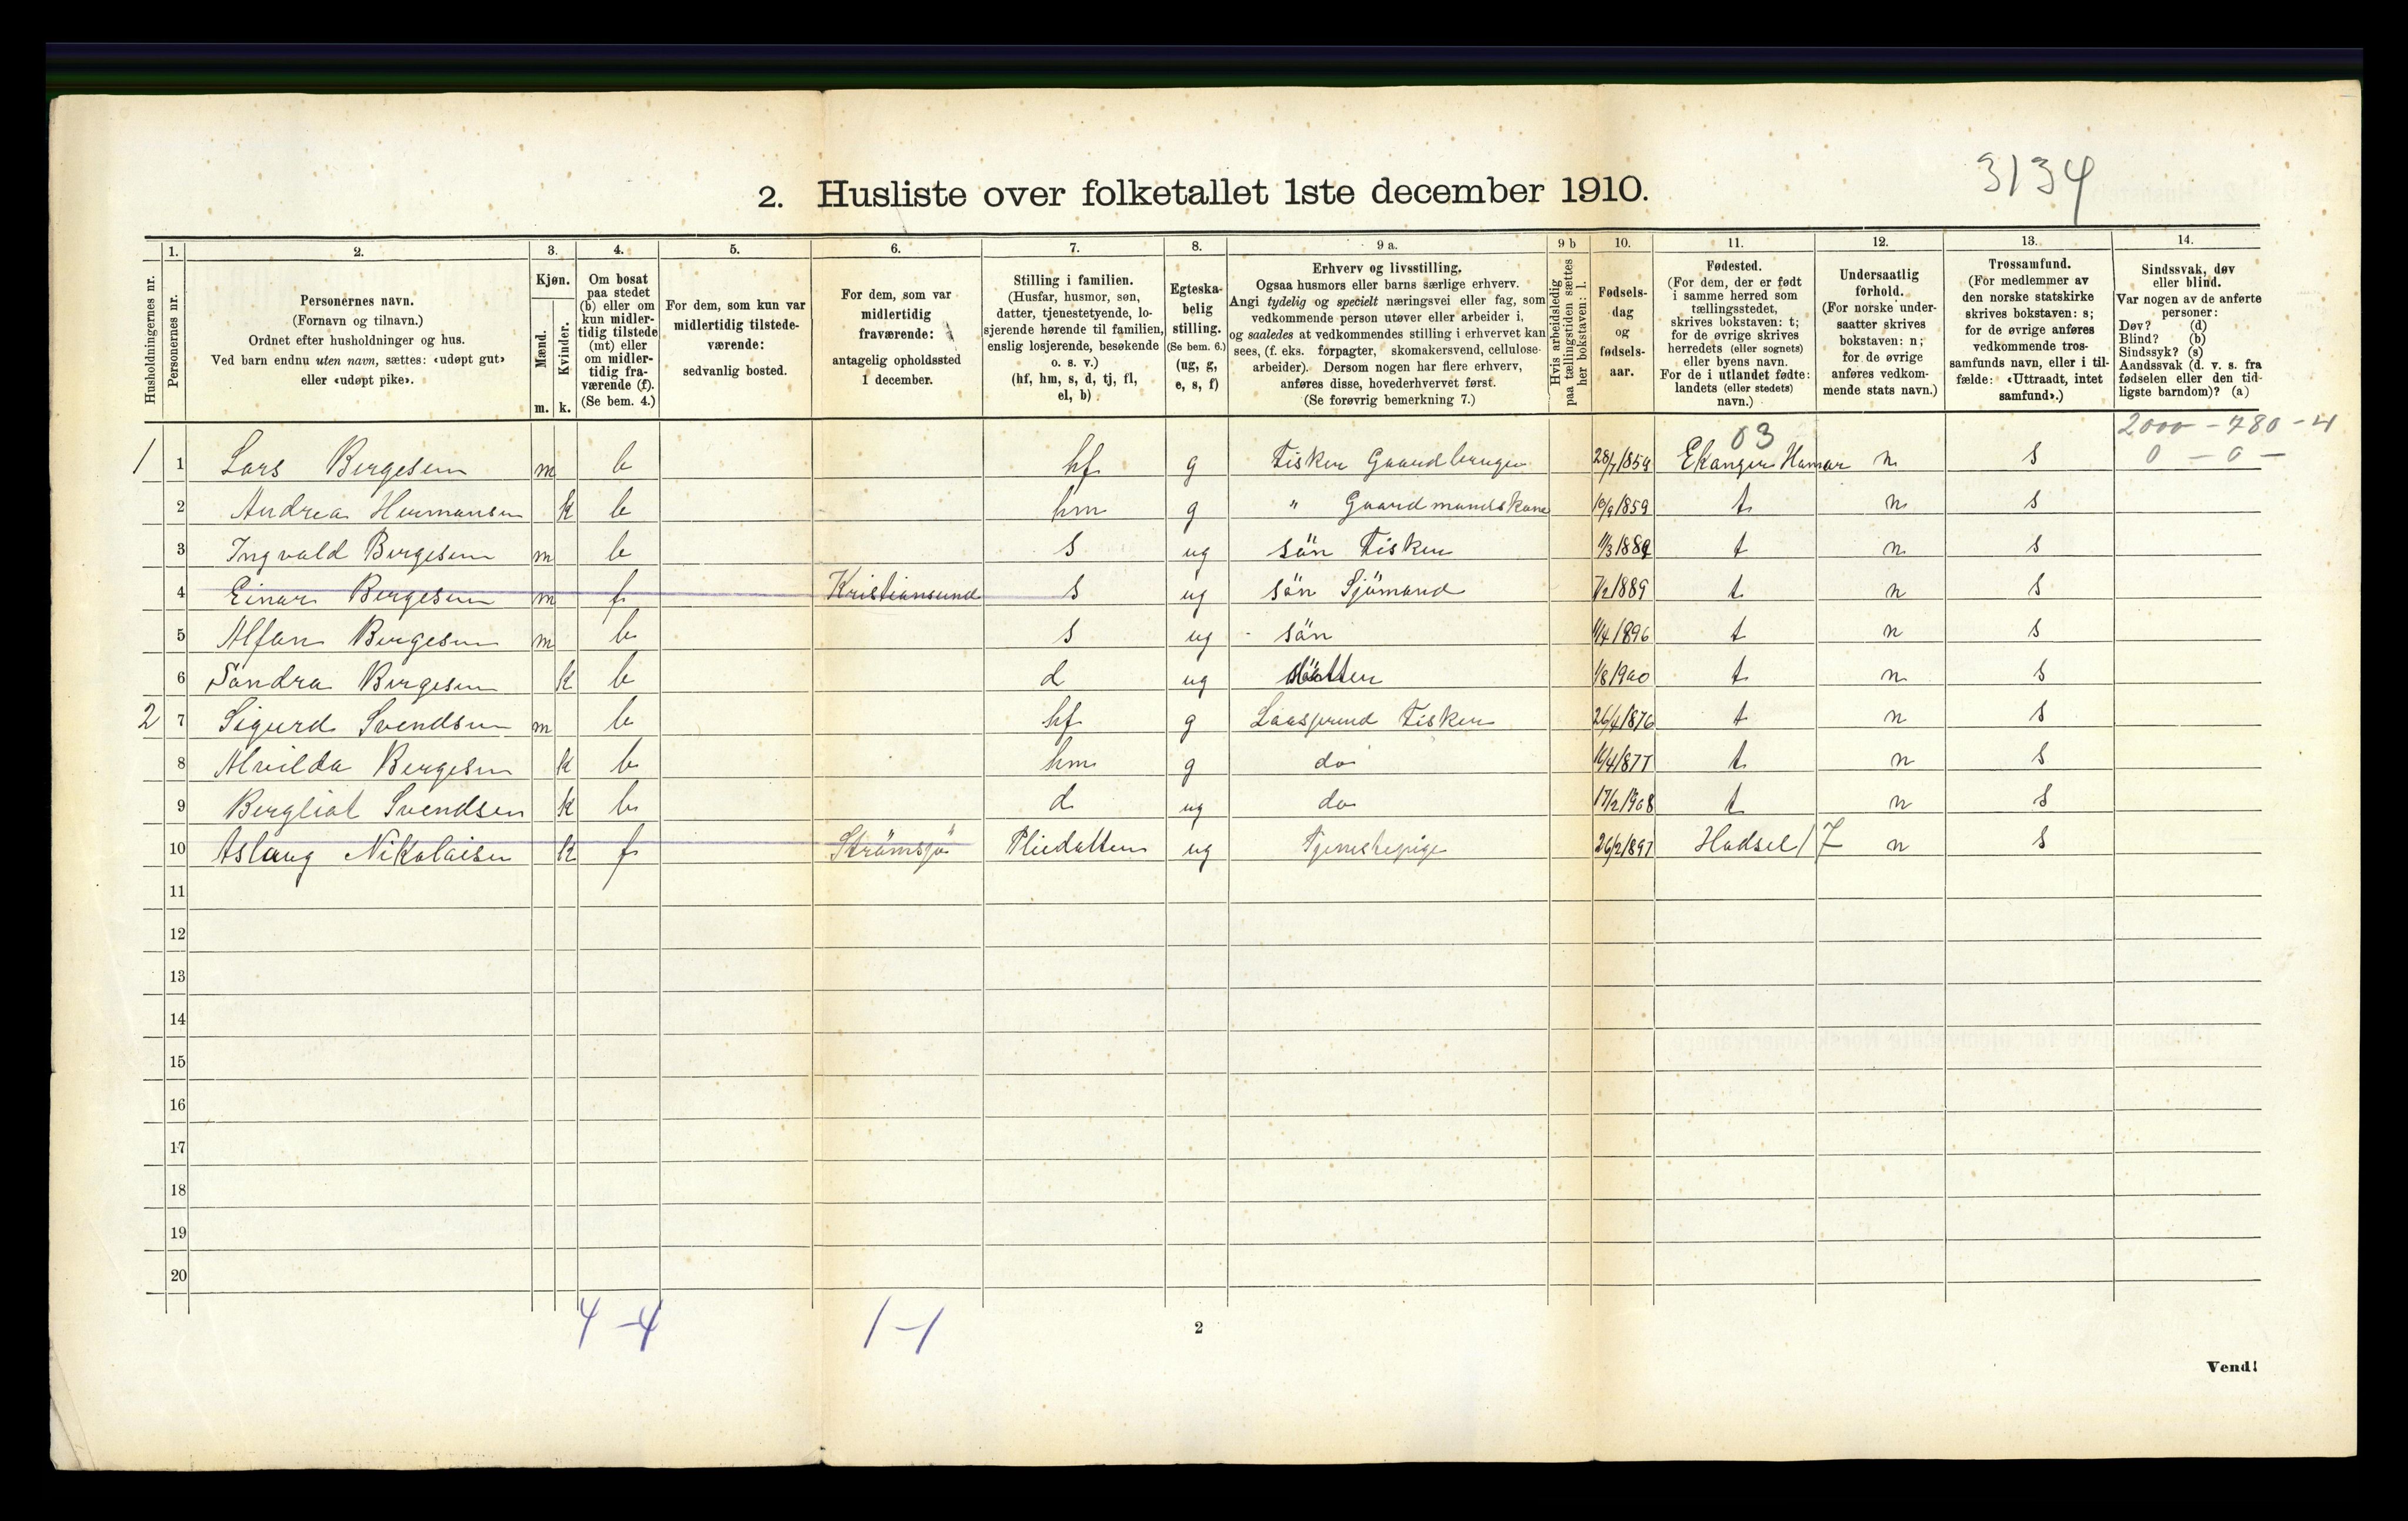 3134
2. Husliste over folketallet 1ste december 1910.
1. 2. 3. 4. 5. 6. 7. 8. 9 a. 9 b 10. 11. 12. 13. 14.
Husholdningernes nr.
Personernes nr.
Personernes navn.
(Fornavn og tilnavn.)
Ordnet efter husholdninger og hus.
Ved barn endnu uten navn, sættes: «udøpt gut»
eller «udøpt pike».
Kjøn.
Mænd.
Kvinder.
m. k.
Om bosat
paa stedet
(b) eller om
kun midler-
tidig tilstede
(mt) eller
om midler-
tidig fra-
værende (f).
(Se bem. 4.)
For dem, som kun var
midlertidig tilstede-
værende:
sedvanlig bosted.
For dem, som var
midlertidig
fraværende:
antagelig opholdssted
1 december.
Stilling i familien.
(Husfar, husmor, søn,
datter, tjenestetyende, lo-
sjerende hørende til familien,
enslig losjerende, besøkende
o. s. v.)
(hf, hm, s, d, tj, fl,
el, b)
Egteska-
belig
stilling.
(Se bem. 6.)
(ug, g,
e, s, f)
Erhverv og livsstilling.
Ogsaa husmors eller barns særlige erhverv.
Angi tydelig og specielt næringsvei eller fag, som
vedkommende person utøver eller arbeider i,
og saaledes at vedkommendes stilling i erhvervet kan
sees, (f. eks. forpagter, skomakersvend, cellulose-
arbeider). Dersom nogen har flere erhverv,
anføres disse, hovederhvervet først.
(Se forøvrig bemerkning 7.)
Hvis arbeidsledig
paa tællingstiden sættes
her bokstaven: l.
Fødsels-
dag
og
fødsels-
aar.
Fødested.
(For dem, der er født
i samme herred som
tællingsstedet,
skrives bokstaven: t;
for de øvrige skrives
herredets (eller sognets)
eller byens navn.
For de i utlandet fødte:
landets (eller stedets)
navn.)
Undersaatlig
forhold.
(For norske under-
saatter skrives
bokstaven: n;
for de øvrige
anføres vedkom-
mende stats navn.)
Trossamfund.
(For medlemmer av
den norske statskirke
skrives bokstaven: s;
for de øvrige anføres
vedkommende tros-
samfunds navn, eller i til-
fælde: «Uttraadt, intet
samfund».)
Sindssvak, døv
eller blind.
Var nogen av de anførte
personer:
Døv? (d)
Blind? (b)
Sindssyk? (s)
Aandssvak (d. v. s. fra
fødselen eller den tid-
ligste barndom)? (a)
03 2000 - 780 - 4
1 1 Lars Bergesen m b hf g Fisker Gaardbruger 28/7 1859 Ekanger Hamar n s 0 - 0 -
2 Andrea Hermansen k b hm g " Gaardmandskone 10/9 1859 t n s
3 Ingvald Bergesen m b s ug sön Fisker 11/3 188 t n s
4 Einar Bergesen m f Kristiansund s ug sön Sjömand 7/2 1889 t n s
5 Alfon Bergesen m b s ug sön 1/4 1896 t n s
6 Sandra Bergesen k b d ug datter 1/8 1900 t n s
2 7 Sigurd Svendsen m b hf g Fisker 26/4 1876 t n s
8 Alvilda Bergesen k b hm g do 16/4 1877 t n s
9 Bergliot Svendsen k b d ug do 17/2 1908 t n s
10 Aslaug Nikolaisen k f Strömsjö Pliedatter ug Tjenestepige 26/2 1897 Hadsel 17 n s
11
12
13
14
15
16
17
18
19
20
4 - 4 1 - 1
2
Vend!